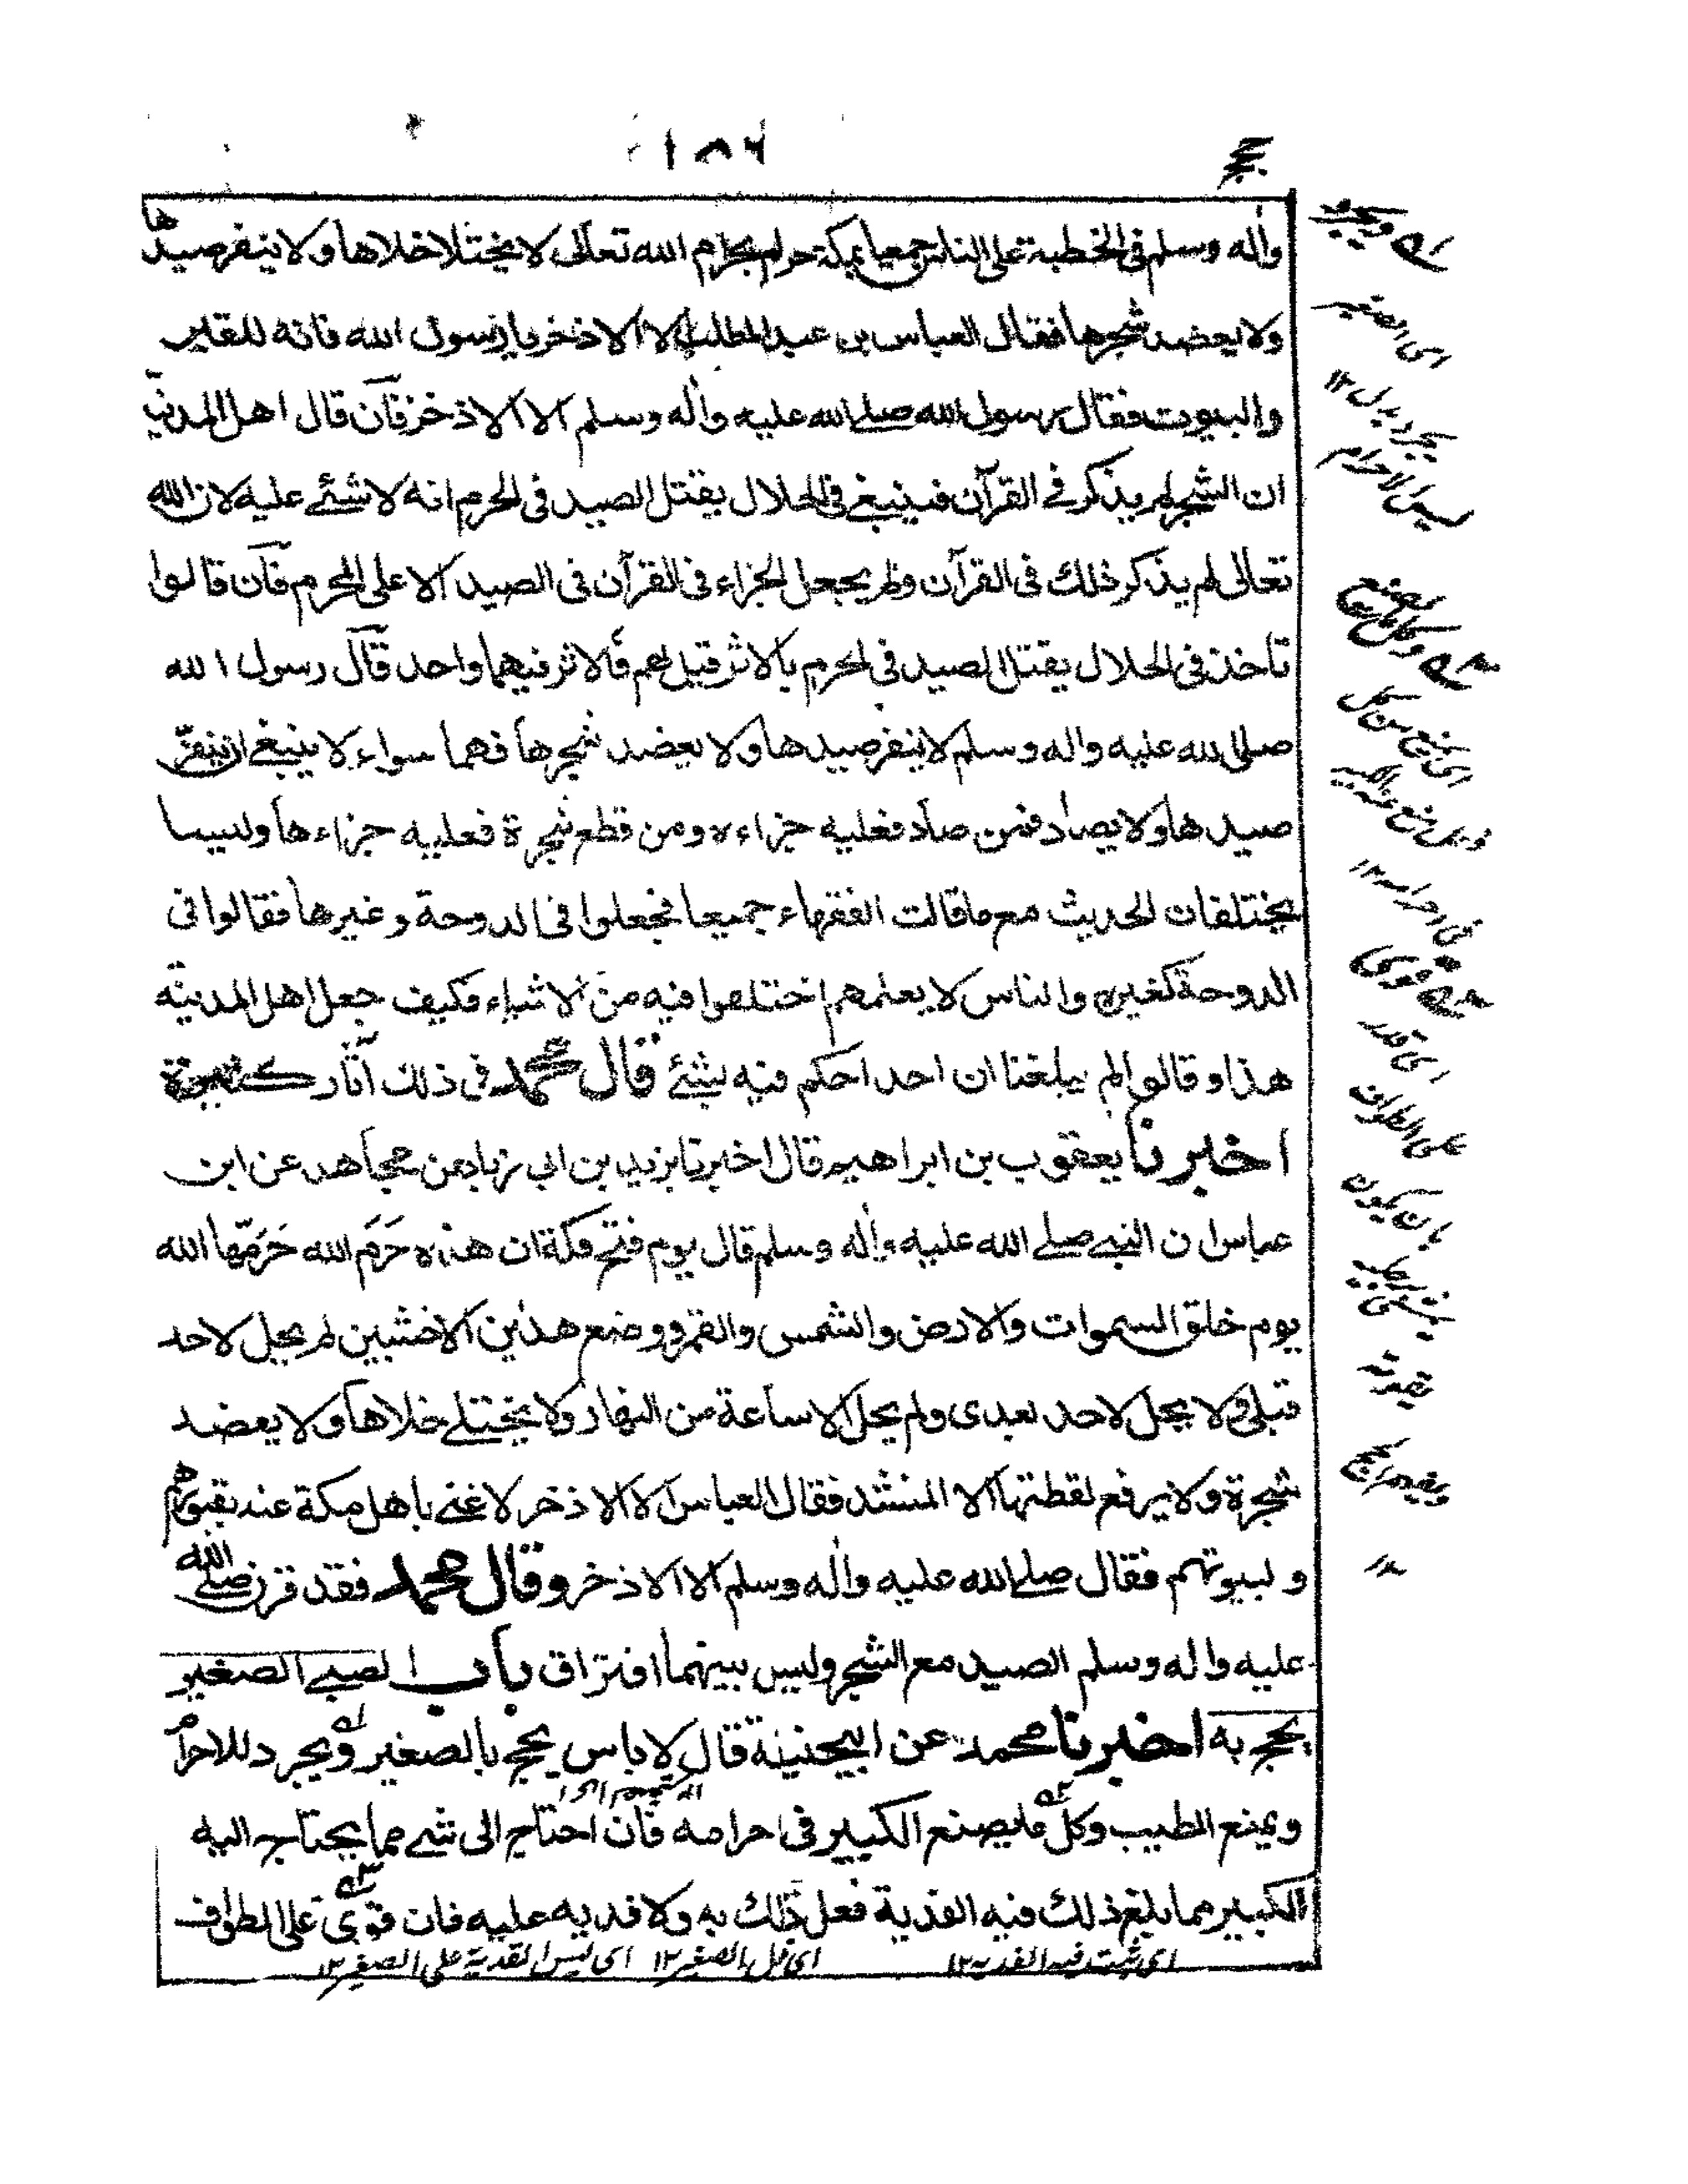 حج
١٨٦
واٰله وسلم فى الخطبة على الناس جمعيا بمكة حرام بحرام الله تعالى لا يختلا خلاها ولا ينفر صيدها
ولا يعضد شجرها فقال العباس بن عبد المطلب الا الاذخر يا رسول الله فانه للقابر
والبيوت فقال رسول الله صلے الله عليه واٰله وسلم الا الاذخر فان قال اهل المدينة
ان الشجر لم يذكر فى القرآن فينبغى فى الحلال يقتل الصيد فى الحرم انه لا شئے عليه لان الله
تعالى لم يذكر ذلك فى القرآن ولم يجعل الجزاء فى القرآن فى الصيد الا على المحرم فان قالوا
تاخذ فى الحلال يقتل الصيد فى الحرم بالاثر قيل لهم فالاثر فيهما واحد قال رسول الله
صلى الله عليه واله وسلم لا ينفر صيدها ولا يعضد شجرها فهما سواء لا ينبغے ان ينفر
صيدها ولا يصاد فمن صاد فعليه جزاءه ومن قطع شجرة فعليه جزاءها وليسا
يختلفان الحديث مع ما قالت الفقهاء جميعا فجعلوا فى الدوحة وغيرها فقالوا فى
الدوحة كغيره والناس لا يعلمهم اختلفوا فيه من الاشياء فكيف جعل اهل المدينة
هذا وقالوا لم يبلغنا ان احدا حكم فيه بشئے قال محمد فى ذلك اٰثار كثيرة
اخبرنا يعقوب بن ابراهيم قال اخبرنا يزيد بن ابى زياد عن مجاهد عن ابن
عباس ان النبے صلے الله عليه واٰله وسلم قال يوم فتح مكة ان هذه حَرَم الله حَرَمّها الله
يوم خلق السموات والارض والشمس والقمر ووضع هذين الاخشبين لم يحل لاحد
قبلى ولا يحل لاحد بعدى ولم يحل الا ساعة من النهار ولا يختلے خلاها ولا يعضد
شجرة ولا يرفع لقطتها الا المنشد فقال العباس الا الاذخر لا غنے باهل مكة عنه بقبورهم
ولبيوتهم فقال صلے الله عليه واٰله وسلم الا الاذخر وقال محمد فقد قرن صلے الله
عليه واله وسلم الصيد مع الشجر وليس بينهما افتراق باب الصبے الصغير
يحج به اخبرنا محمد عن ابيحنيفة قال لا باس يحج بالصغير ويجرد للاحرام
ويمنع الطيب وكل ما يصنع الكبير فى احرامه فان احتاج الى شے مما يحتاج اليه
الكبير مما يبلغ ذلك فيه الفدية فعل ذلك به ولا فديه عليه فان قوى على الطواف
اى يثبت فيه الفديه ١٢ اى فعل بالصغير ١٢ اى ليس الفدية على الصغير ١٢
اى الصغير
اى قدر
على الطواف
بان يكون